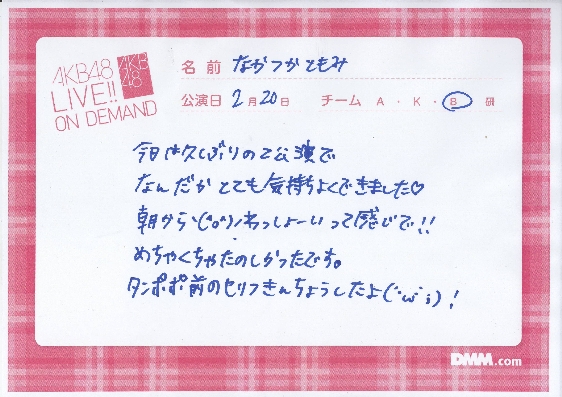 AKB48
LIVE!!
ON DEMAND
AKB
48
名前 なかつかともみ
公演日 2月20日 チーム A・K・B 研
今日は久しぶりの2公演で
なんだかとても気持ちよくできました♡
朝から\(°o°)/わっしょーいって感じで!!
めちゃくちゃたのしかったです。
タンポポ前のセリフきんちょうしたよ(´・ω・`;)!
DMM.com